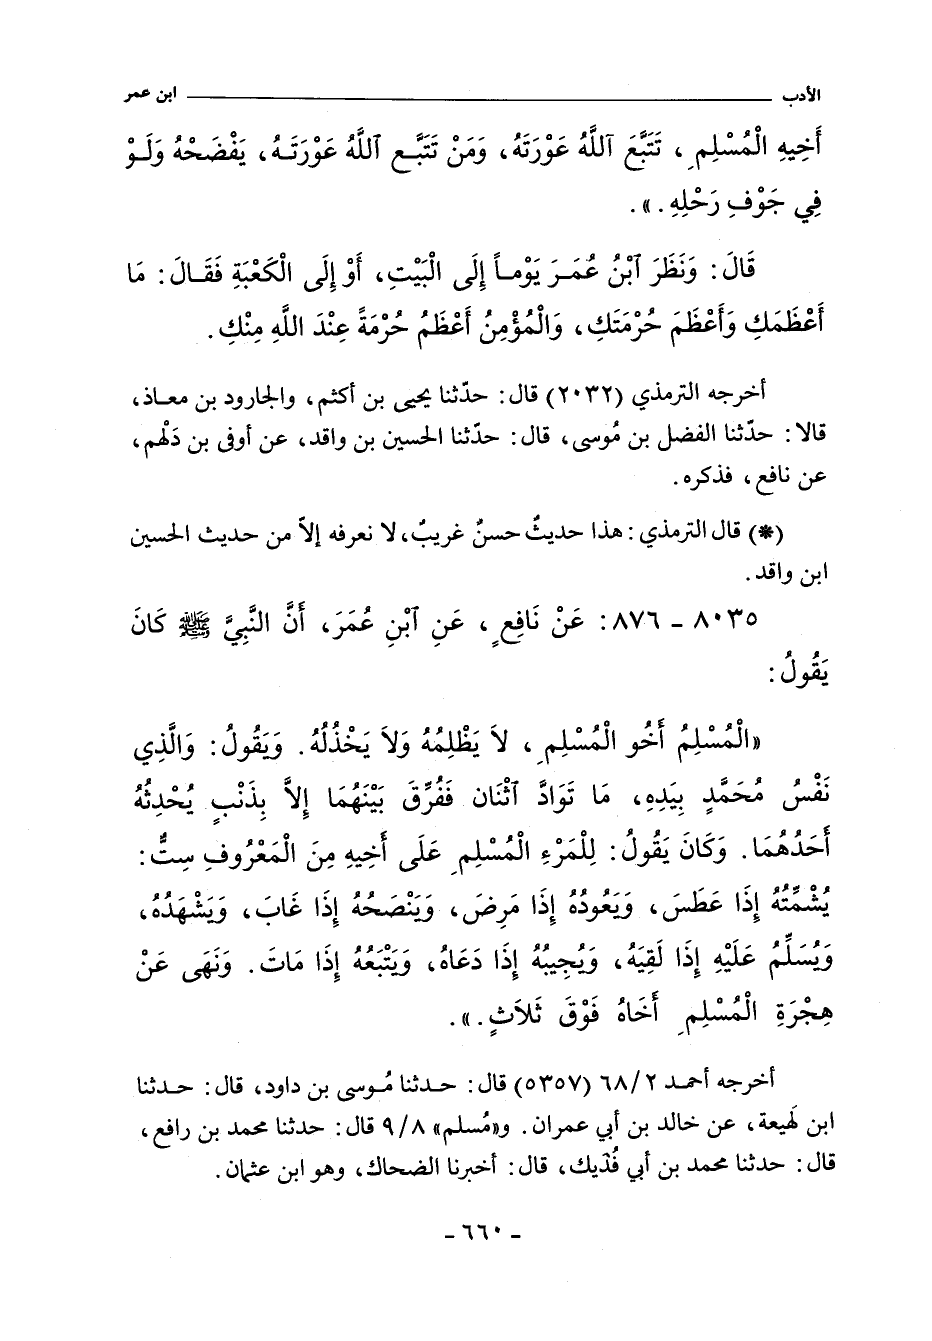 الأدب ــــــ ابن عمر
أَخِيهِ الْمُسْلِمِ، تَتَبَّعَ آللَّهُ عَوْرَتَهُ، وَمَنْ تَتَبَّعِ ٱللَّهُ عَوْرَتَهُ، يَفْضَحْهُ وَلَوْ
فِي جَوْفِ رَحْلِهِ.».
قَالَ: وَنَظَرَ ٱبْنُ عُمَرَ يَوْماً إِلَى الْبَيْتِ، أَوْ إِلَى الْكَعْبَةِ فَقَالَ: مَا
أَعْظَمَكِ وَأَعْظَمَ حُرْمَتَكِ، وَالْمُؤْمِنُ أَعْظَمُ حُرْمَةً عِنْدَ اللَّهِ مِنْكِ.
أخرجه الترمذي (٢٠٣٢) قال: حدّثنا يحيى بن أكثم، والجارود بن معاذ،
قالا: حدّثنا الفضل بن مُوسى، قال: حدّثنا الحسين بن واقد، عن أوفى بن دَلْهم،
عن نافع، فذكره.
(*) قال الترمذي: هذا حديثٌ حسنٌ غريبٌ، لا نعرفه إلاّ من حديث الحسين
ابن واقد.
٨٠٣٥ - ٨٧٦: عَنْ نَافِعٍ، عَنِ ٱبْنِ عُمَرَ، أَنَّ النَّبِيَّ ﷺ كَانَ
يَقُولُ:
«الْمُسْلِمُ أَخُو الْمُسْلِمِ، لَا يَظْلِمُهُ وَلَا يَخْذُلُهُ. وَيَقُولُ: وَالَّذِي
نَفْسُ مُحَمَّدٍ بِيَدِهِ، مَا تَوَادَّ ٱثْنَانِ فَفُرِّقَ بَيْنَهُمَا إِلاَّ بِذَنْبٍ يُحْدِثُهُ
أَحَدُهُمَا. وَكَانَ يَقُولُ: لِلْمَرْءِ الْمُسْلِمِ عَلَى أَخِيهِ مِنَ الْمَعْرُوفِ سِتٌّ:
يُشَمِّتُهُ إِذَا عَطَسَ، وَيَعُودُهُ إِذَا مَرِضَ، وَيَنْصَحُهُ إِذَا غَابَ، وَيَشْهَدُهُ،
وَيُسَلِّمُ عَلَيْهِ إِذَا لَقِيَهُ، وَيُجِيبُهُ إِذَا دَعَاهُ، وَيَتْبَعُهُ إِذَا مَاتَ. وَنَهَى عَنْ
هِجْرَةِ الْمُسْلِمِ أَخَاهُ فَوْقَ ثَلَاثٍ.».
أخرجه أحمد ٦٨/٢ (٥٣٥٧) قال: حدثنا مُوسى بن داود، قال: حدثنا
ابن لَهيعة، عن خالد بن أبي عمران. و«مُسلم» ٩/٨ قال: حدثنا محمد بن رافع،
قال: حدثنا محمد بن أبي فُدَيك، قال: أخبرنا الضحاك، وهو ابن عثمان.
- ٦٦٠ -